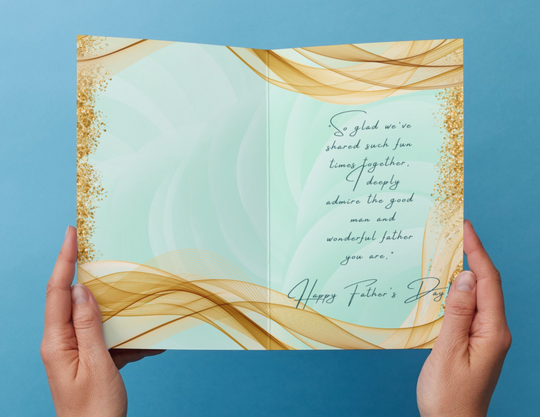 "So glad we've
shared such fun
times together,
I deeply
admire the good
man and
wonderful father
you are."
Happy Father's Day!